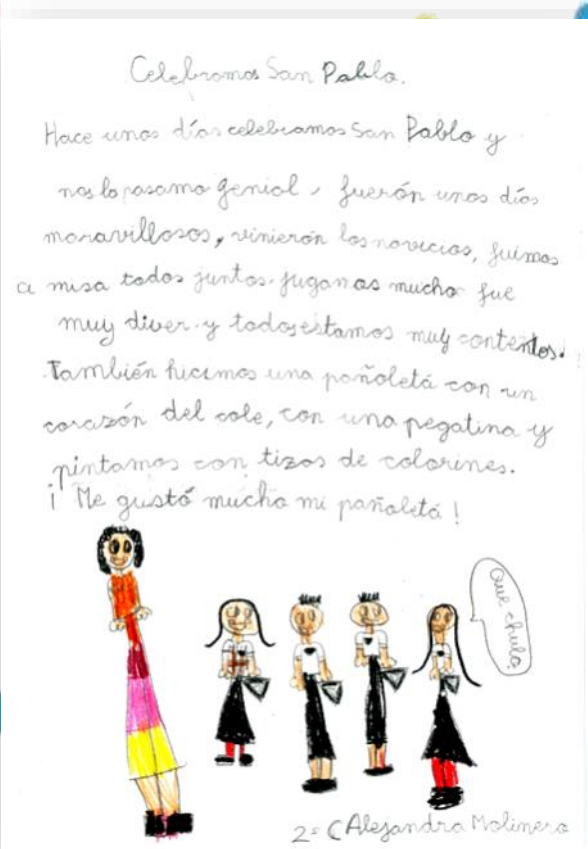 Celebramos San Pablo.
Hace unos días celebramos San Pablo y
nos lo pasamo genial, fuerón unos días
maravillosos, vinierón los novicios, fuimos
a misa todos juntos. jugamos mucho fue
muy diver y todos estamos muy contentos.
También hicimos una pañoletá con un
corazón del cole, con una pegatina y
pintamos con tizas de colorines.
¡Me gustó mucho mi pañoletá!
Que chulo
2º C Alejandra Molinero